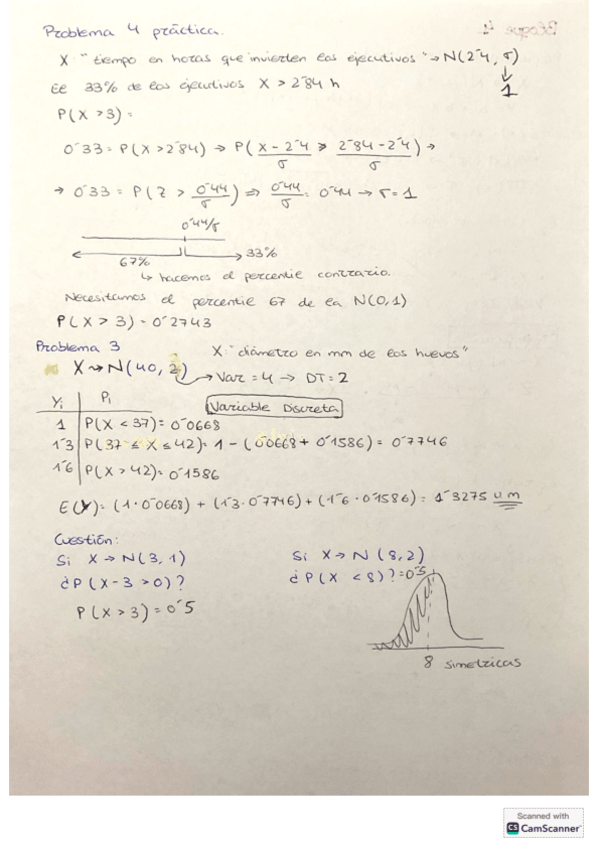 Problema 4 práctica.
Bloque 1.
X: "tiempo en horas que invierten los ejecutivos" → N(2'4, σ)
↓
1
El 33% de los ejecutivos X > 2'84 h
P(X > 3) =
0'33 = P(X > 2'84) → P(X - 2'4 / σ > 2'84 - 2'4 / σ) →
→ 0'33 = P(Z > 0'44 / σ) ⇒ 0'44 / σ = 0'44 → σ = 1
0'44/σ
67% 33%
↳ hacemos el percentil contrario.
Necesitamos el percentil 67 de la N(0,1)
P(X > 3) = 0'2743
Problema 3
X: "diámetro en mm de los huevos"
X → N(40, 2) → Var = 4 → DT = 2
Yi Pi Variable Discreta
1 P(X < 37) = 0'0668
1'3 P(37 ≤ X ≤ 42) = 1 - (0'0668 + 0'1586) = 0'7746
1'6 P(X > 42) = 0'1586
E(Y) = (1 · 0'0668) + (1'3 · 0'7746) + (1'6 · 0'1586) = 1'3275 um
Cuestión:
Si X → N(3, 1)
¿P(X - 3 > 0)?
P(X > 3) = 0'5
Si X → N(8, 2)
¿P(X < 8)? = 0'5
8 simetricas
Scanned with
CS CamScanner